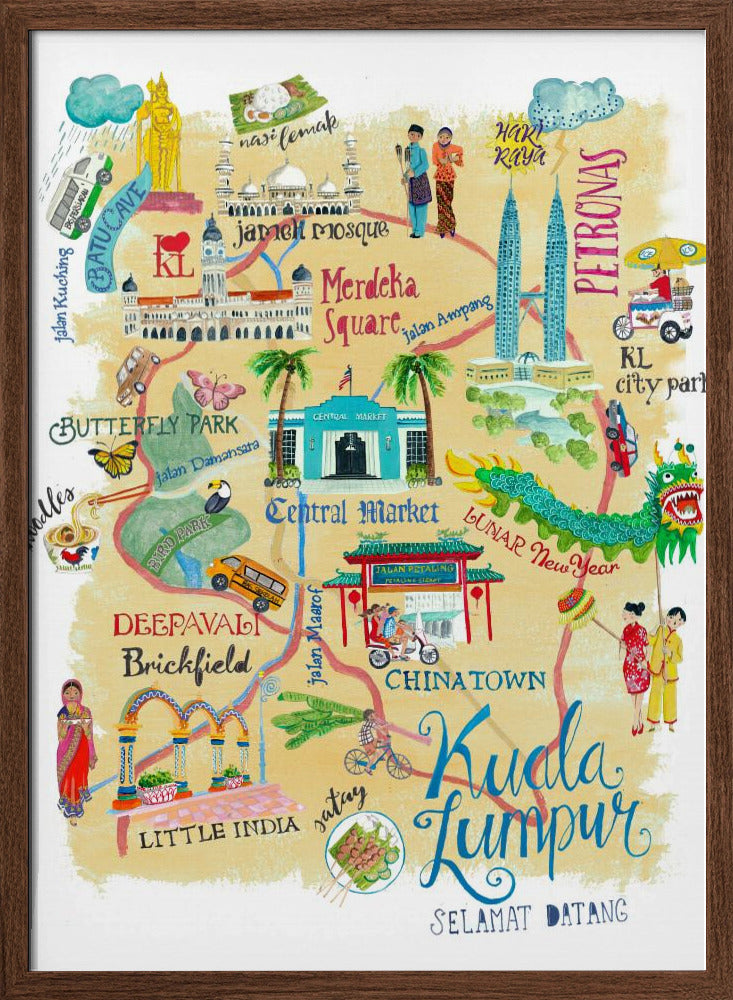 nasi lemak
HARI
RAYA
BATU CAVE
I
KL
jalan Kuching
jameh mosque
PETRONAS
Merdeka
Square
jalan Ampang
KL
city par
BUTTERFLY PARK
CENTRAL MARKET
jalan Damansara
noodles
Central Market
BIRD PARK
LUNAR New Year
JALAN PETALING
PETALING STREET
DEEPAVALI
Brickfield
jalan Maarof
CHINATOWN
Kuala
Lumpur
LITTLE INDIA
satay
SELAMAT DATANG